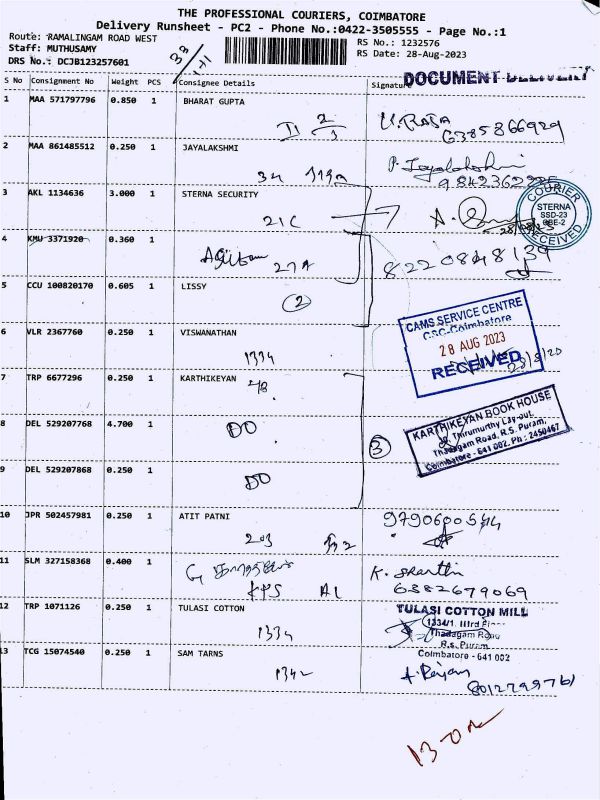 THE PROFESSIONAL COURIERS, COIMBATORE
Delivery Runsheet - PC2 - Phone No.:0422-3505555 - Page No.:1
Route: RAMALINGAM ROAD WEST
RS No.: 1232576
Staff: MUTHUSAMY
RS Date: 28-Aug-2023
DRS No.: DCJB123257601
S No Consignment No Weight PCS Consignee Details Signature
DOCUMENT DELIVERY
1 MAA 571797796 0.850 1 BHARAT GUPTA
U. RAJA
6385866929
2 MAA 861485512 0.250 1 JAYALAKSHMI
34
P. Jayalakshmi
3 AKL 1134636 3.000 1 STERNA SECURITY
21C
COURIER
STERNA
SSD-23
CBE-2
RECEIVED
4 KMU 3371920 0.360 1
27A
8220848139
5 CCU 100820170 0.605 1 LISSY
2
CAMS SERVICE CENTRE
CSC-Coimbatore
28 AUG 2023
RECEIVED
6 VLR 2367760 0.250 1 VISWANATHAN
1334
7 TRP 6677296 0.250 1 KARTHIKEYAN
KARTHIKEYAN BOOK HOUSE
Thirumurthy Lay-out,
Thadagam Road, R.S. Puram,
Coimbatore - 641 002. Ph : 2450467
8 DEL 529207768 4.700 1
DO
3
9 DEL 529207868 0.250 1
DO
10 JPR 502457981 0.250 1 ATIT PATNI
203
11 SLM 327158368 0.400 1
G
KPS A1
K. Shanthi
6382679069
12 TRP 1071126 0.250 1 TULASI COTTON
1334
TULASI COTTON MILL
1334/1, IIIrd
Thadagam Road
R.s. Puram
Coimbatore - 641 002
13 TCG 15074540 0.250 1 SAM TARNS
1342
8012799761